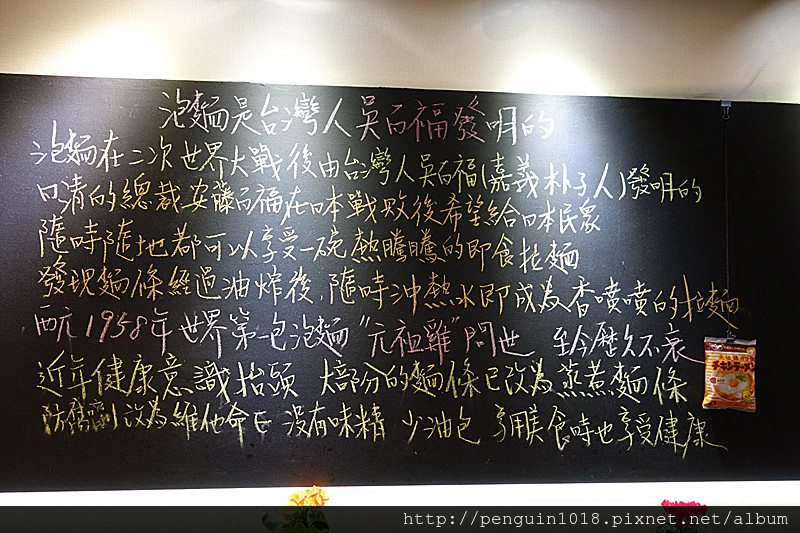 泡麵是台灣人吳百福發明的
泡麵在二次世界大戰後由台灣人吳百福(嘉義朴子人)發明的
日清的總裁安藤百福在日本戰敗後希望給日本民衆
隨時隨地都可以享受一碗熱騰騰的即食拉麵
發現麵條經過油炸後,隨時沖熱水即成為香噴噴的拉麵
西元1958年世界第一包泡麵"元祖雞"問世 至今歷久不衰
近年健康意識抬頭 大部分的麵條已改為蒸煮麵條
防腐劑改為維他命E 沒有味精 少油包 享用美食時也享受健康
チキンラーメン
http://penguin1018.pixnet.net/album